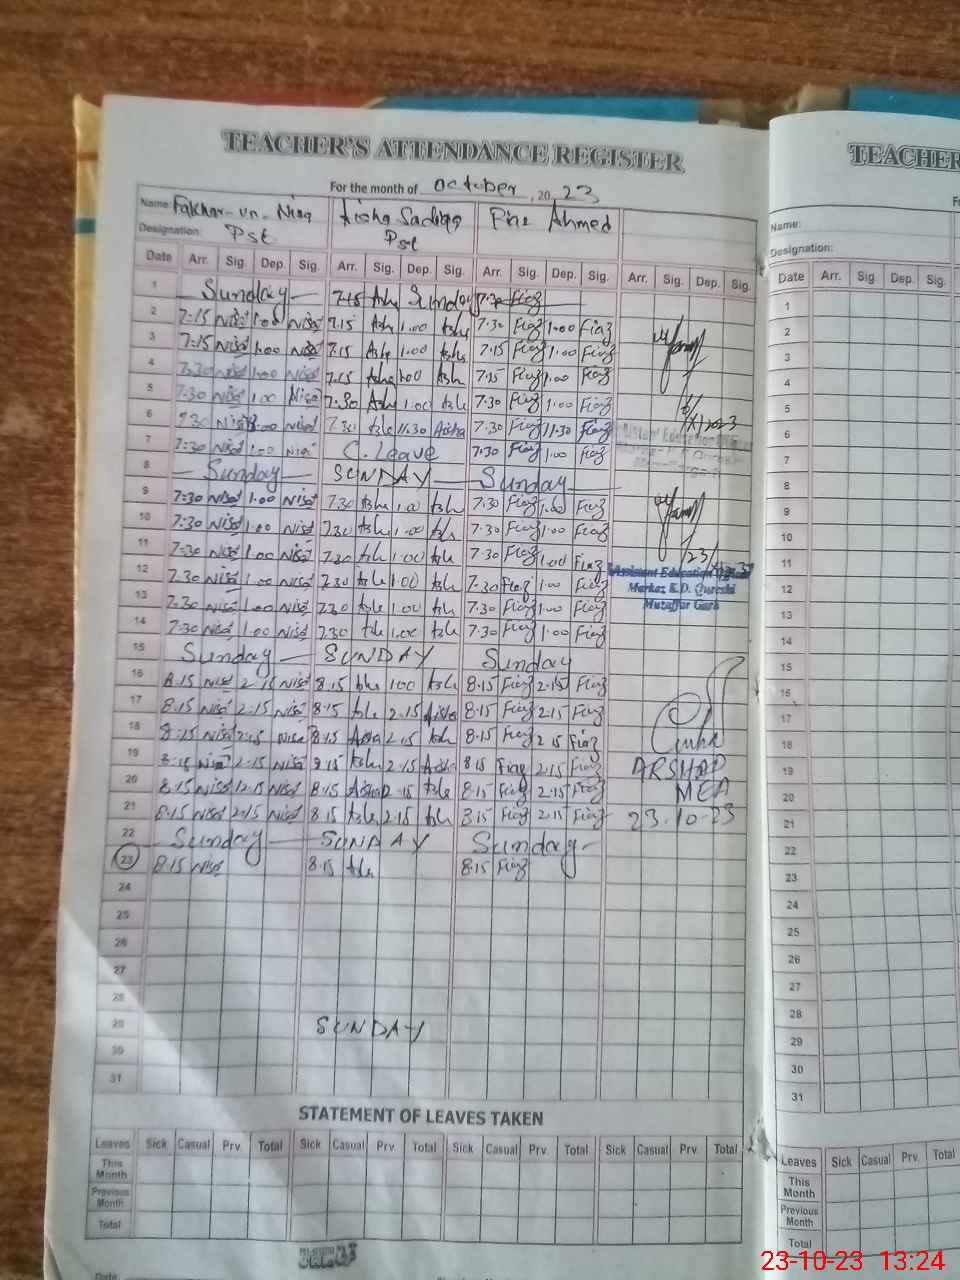 TEACHER'S ATTENDANCE REGISTER
For the month of October, 2023
Name: Fakhar-un-Nisa Aisha Sadiqa Fiaz Ahmed
Designation: Pst Pst
Date Arr. Sig. Dep. Sig. Arr. Sig. Dep. Sig. Arr. Sig. Dep. Sig. Arr. Sig. Dep. Sig.
1 Sunday 7.15 Sunday 7.30 Fiaz
2 7:15 Nisa 1.00 Nisa 7.15 Ash 1.00 Ash 7.30 Fiaz 1.00 Fiaz
3 7:15 Nisa 1.00 Nisa 7.15 Ash 1.00 Ash 7.15 Fiaz 1.00 Fiaz
4 7:30 Nisa 1.00 Nisa 7.15 Ash 1.00 Ash 7.15 Fiaz 1.00 Fiaz
5 7:30 Nisa 1.00 Nisa 7.30 Ash 1.00 Ash 7.30 Fiaz 1.00 Fiaz
6 7:30 Nisa Nisa 7.30 Ash 11.30 Aisha 7.30 Fiaz 11.30 Fiaz
7 7:30 Nisa 1.00 Nisa C. Leave 7.30 Fiaz 1.00 Fiaz
8 Sunday SUNDAY Sunday
9 7:30 Nisa 1.00 Nisa 7.30 Ash 1.00 Ash 7.30 Fiaz 1.00 Fiaz
10 7:30 Nisa 1.00 Nisa 7.30 Ash 1.00 Ash 7.30 Fiaz 1.00 Fiaz
11 7:30 Nisa 1.00 Nisa 7.30 Ash 1.00 Ash 7.30 Fiaz 1.00 Fiaz
12 7.30 Nisa 1.00 Nisa 7.30 Ash 1.00 Ash 7.30 Fiaz 1.00 Fiaz
Assistant Education Officer
Markaz K.D. Qureshi
Muzaffar Garh
13 7:30 Nisa 1.00 Nisa 7.30 Ash 1.00 Ash 7.30 Fiaz 1.00 Fiaz
14 7:30 Nisa 1.00 Nisa 7.30 Ash 1.00 Ash 7.30 Fiaz 1.00 Fiaz
15 Sunday SUNDAY Sunday
16 8.15 Nisa 2.15 Nisa 8.15 Ash 1.00 Ash 8.15 Fiaz 2.15 Fiaz
17 8.15 Nisa 2.15 Nisa 8.15 Ash 2.15 Aisha 8.15 Fiaz 2.15 Fiaz
18 8.15 Nisa 2.15 Nisa 8.15 Aisha 2.15 Ash 8.15 Fiaz 2.15 Fiaz
19 8.15 Nisa 2.15 Nisa 8.15 Ash 2.15 Aisha 8.15 Fiaz 2.15 Fiaz ARSHAD
20 8.15 Nisa 2.15 Nisa 8.15 Aisha 2.15 Ash 8.15 Fiaz 2.15 Fiaz MEA
21 8.15 Nisa 2.15 Nisa 8.15 Ash 2.15 Ash 8.15 Fiaz 2.15 Fiaz 23.10-23
22 Sunday SUNDAY Sunday
23 8.15 Nisa 8.15 Ash 8.15 Fiaz
24
25
26
27
28
29 SUNDAY
30
31
STATEMENT OF LEAVES TAKEN
Leaves Sick Casual Prv. Total Sick Casual Prv. Total Sick Casual Prv. Total Sick Casual Prv. Total
This Month
Previous Month
Total
TEACHER
Name:
Designation:
Date Arr. Sig. Dep. Sig.
1
2
3
4
5
6
7
8
9
10
11
12
13
14
15
16
17
18
19
20
21
22
23
24
25
26
27
28
29
30
31
Leaves Sick Casual Prv. Total
This Month
Previous Month
Total
23-10-23 13:24